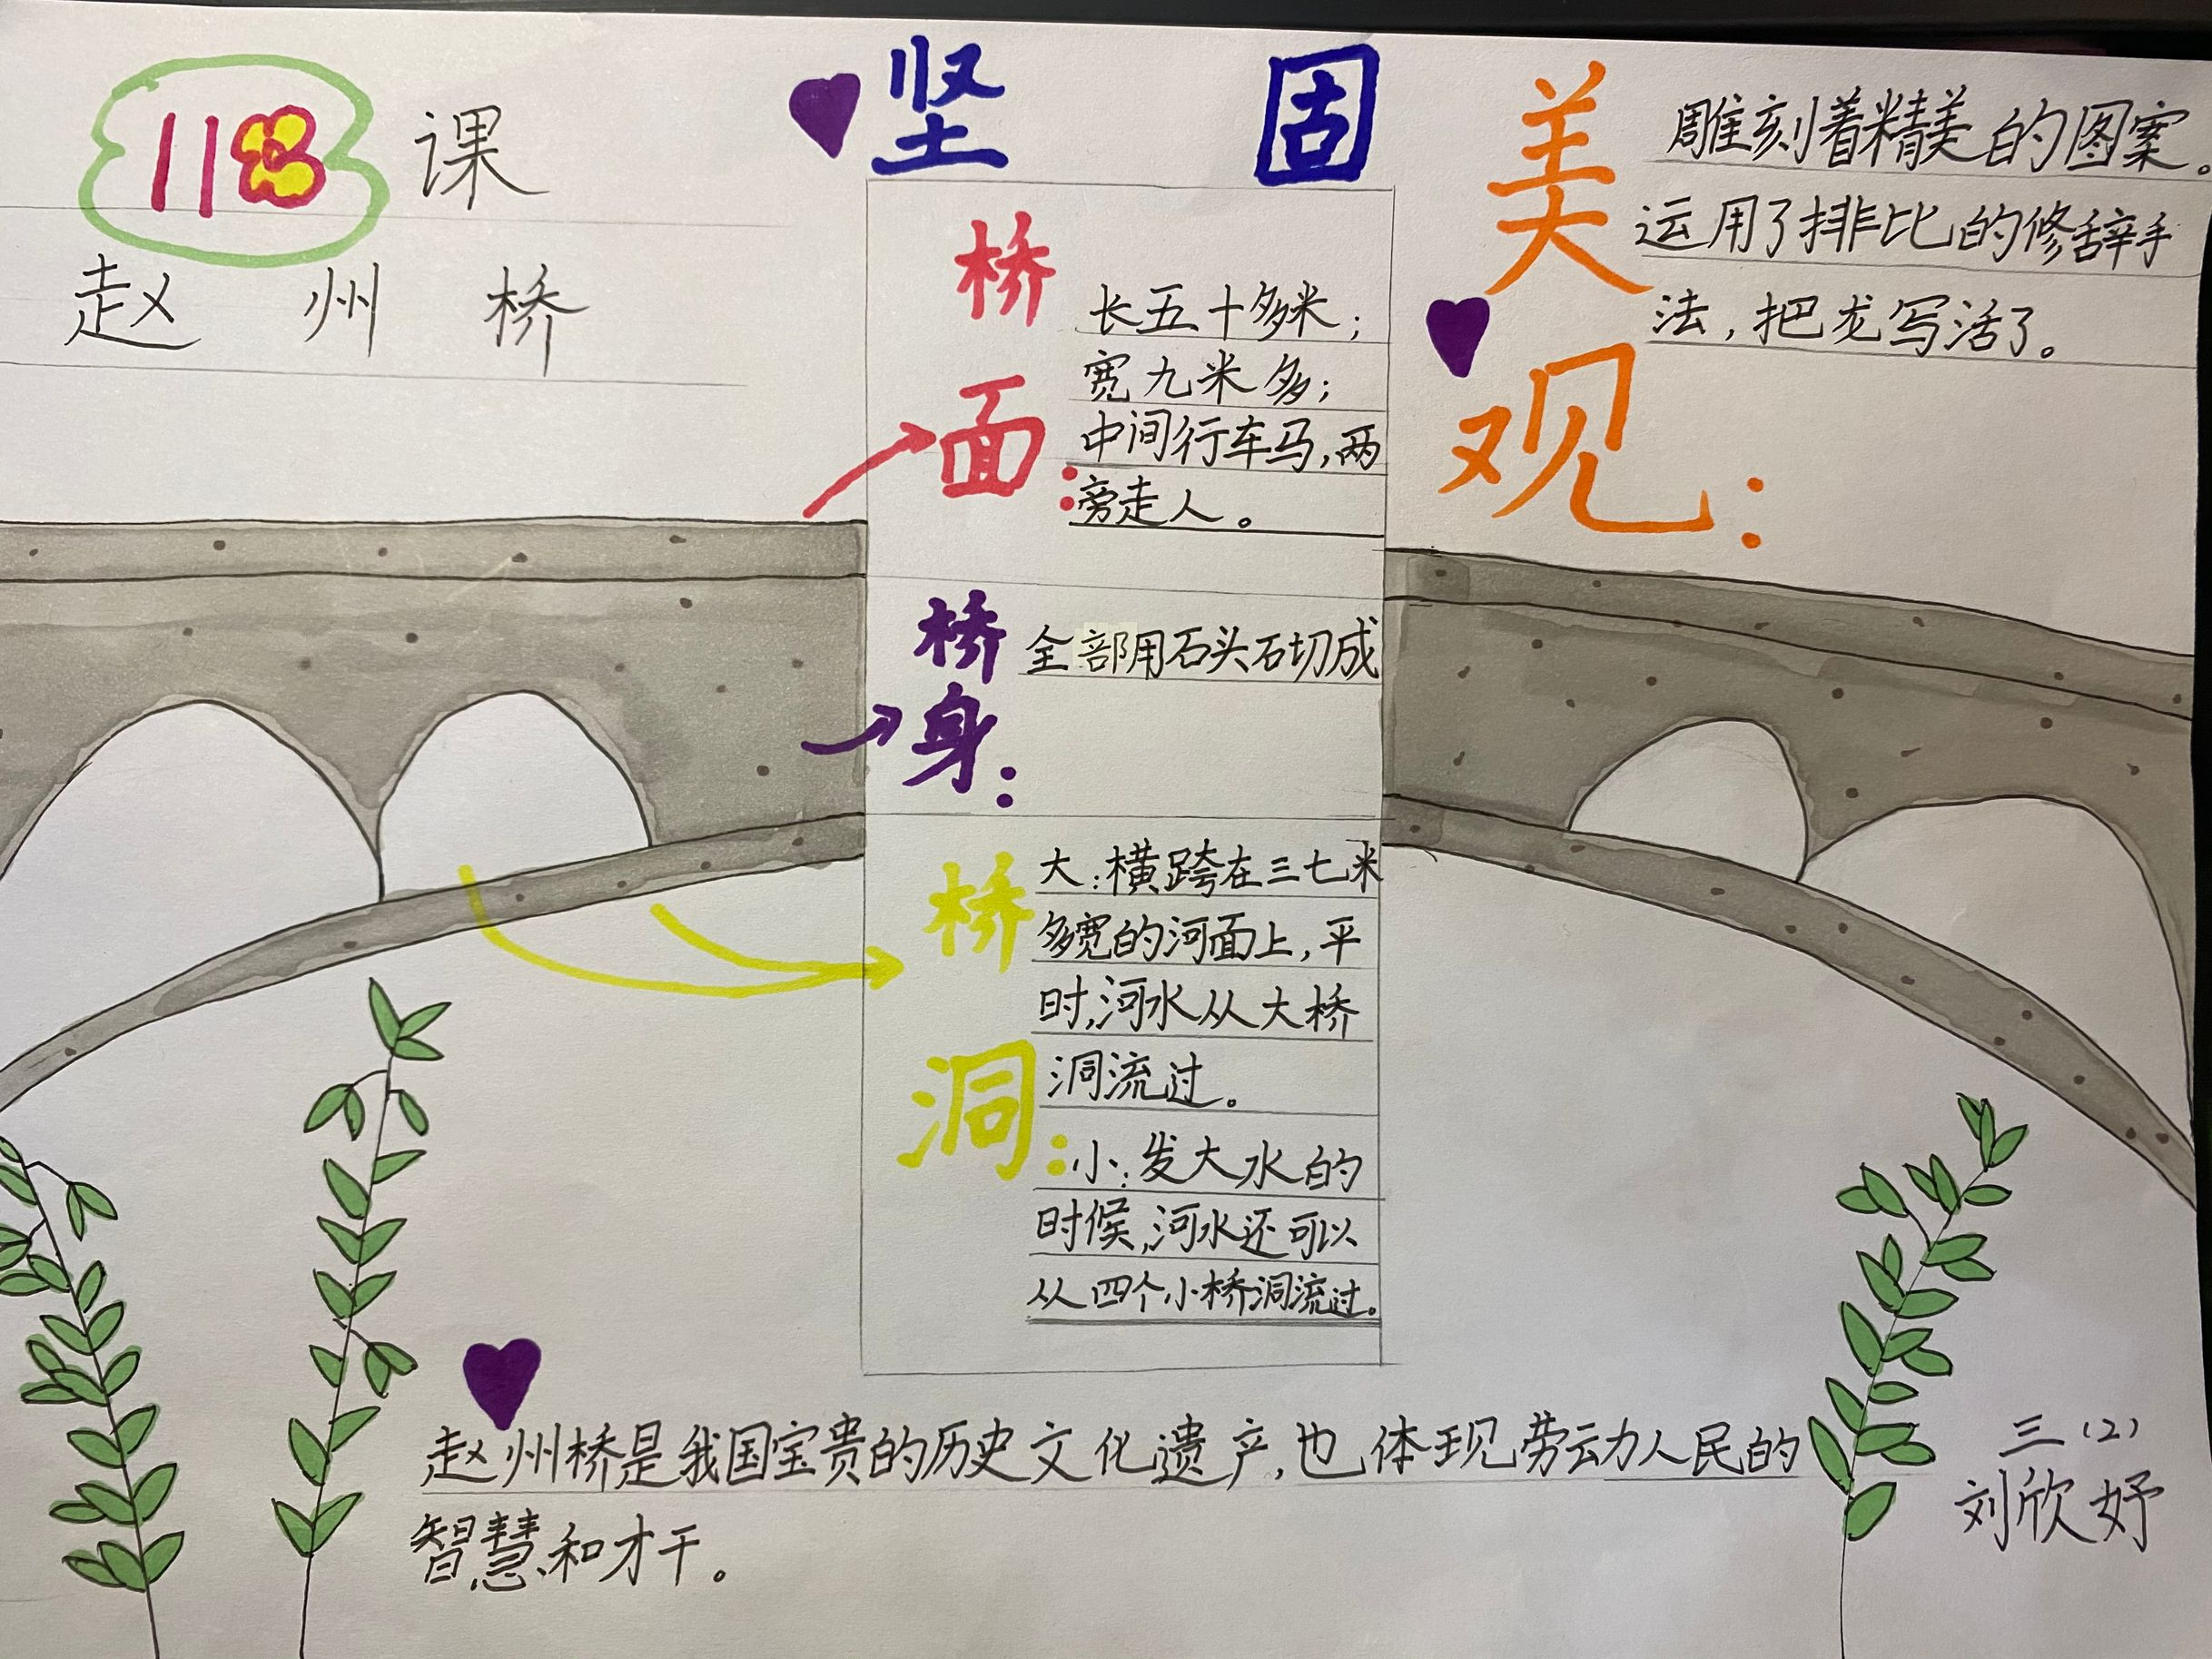 11课
赵州桥
坚固
桥面：
长五十多米；
宽九米多；
中间行车马，两
旁走人。
桥身：
全部用石头砌成
桥洞：
大：横跨在三七米
多宽的河面上，平
时，河水从大桥
洞流过。
小：发大水的
时候，河水还可以
从四个小桥洞流过。
美观：
雕刻着精美的图案。
运用了排比的修辞手
法，把龙写活了。
赵州桥是我国宝贵的历史文化遗产，也体现劳动人民的
智慧和才干。
三（2）
刘欣妤